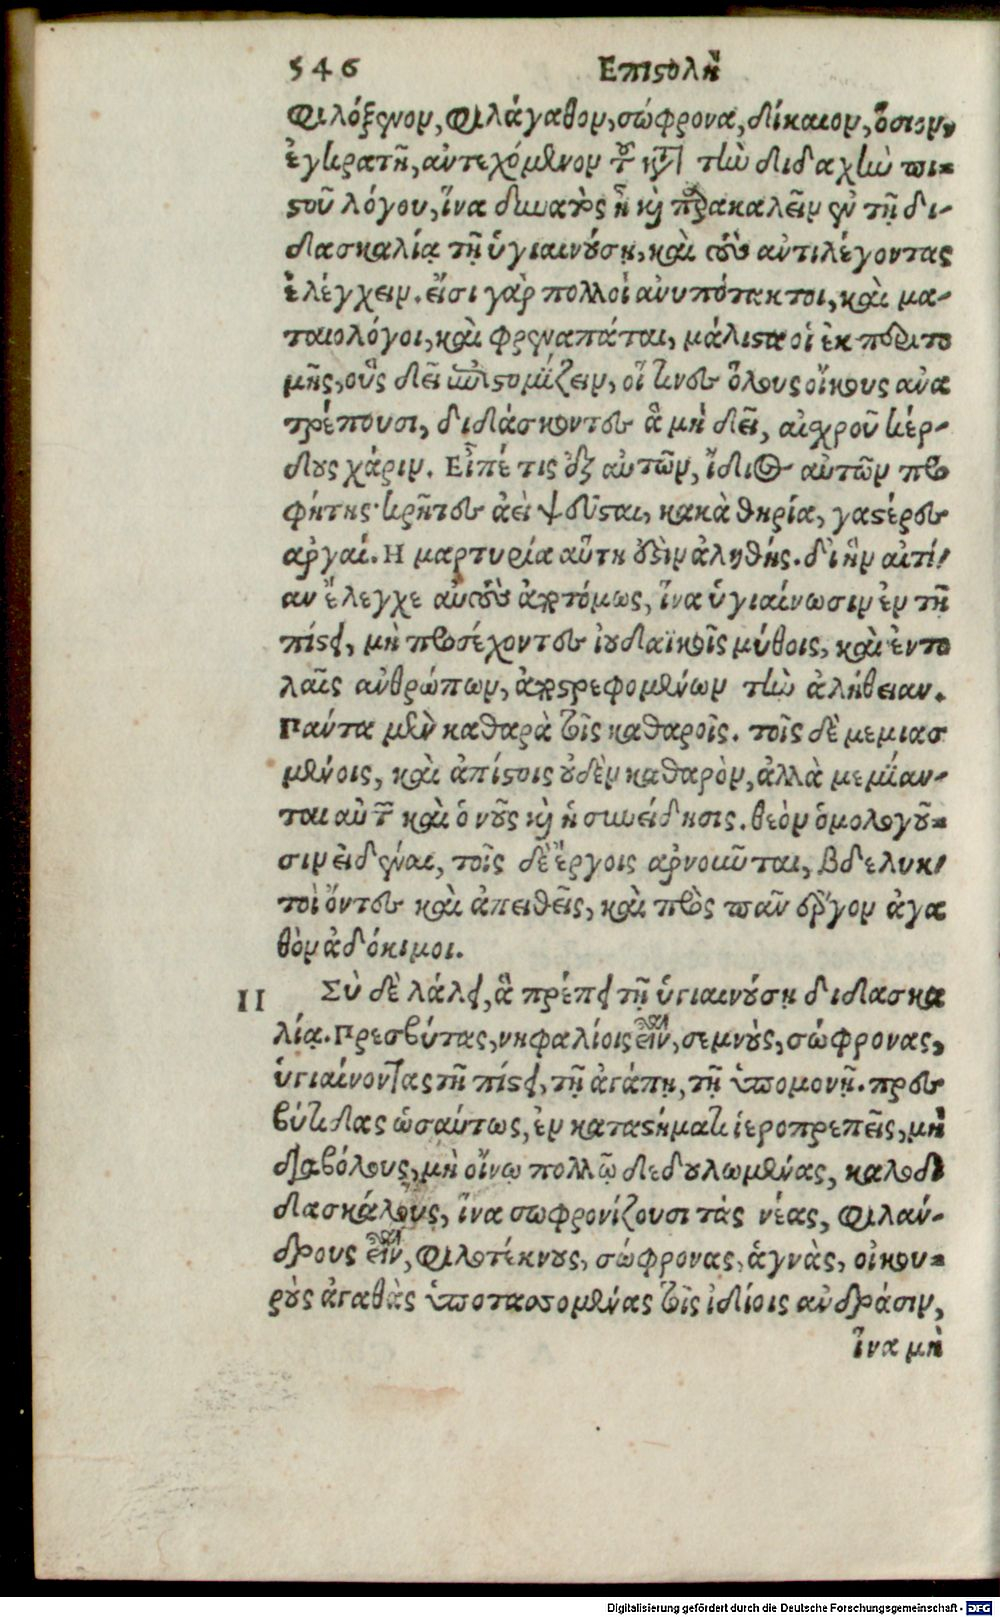 546 Επιϛολὴ
φιλόξενον, φιλάγαθον, σώφρονα, δίκαιον, ὅσιον,
ἐγκρατῆ, αντεχόμενον τοῦ κατὰ τὴν διδαχὴν πι-
ϛοῦ λόγου, ἵνα δυνατὸς ἦ καὶ παρακαλεῖν ἐν τῇ δι-
δασκαλίᾳ τῇ ὑγιαινούσῃ, καὶ τοὺς αὐτιλέγοντας
ἐλέγχειν. εἴσι γὰρ πολλοὶ ανυπότακτοι, καὶ μα-
ταιολόγοι, καὶ φρεναπάται, μάλιϛα οἱ ἐκ περιτο
μῆς, οὓς δεῖ ἐπιϛομίζειν, οἵ τινες ὅλους οἴκους ανα
τρέπουσι, διδάσκοντες ἃ μὴ δεῖ, αἰχροῦ κέρ-
δους χάριν. Εἶπέ τις ἐξ αὐτῶν, ἴδιος αὐτῶν προ
φήτης· κρῆτες ἀεὶ ψεῦϛαι, κακὰ θηρία, γαϛέρες
αργαί. Η μαρτυρία αὕτη ἐϛὶν ἀληθής. δι ἣν αἰτί-
αν ἔλεγχε αὐτοὺς ἀποτόμως, ἵνα ὑγιαίνωσιν ἐν τῇ
πίϛει, μὴ προσέχοντες ἰουδαϊκοῖς μύθοις, καὶ ἐντο
λαῖς ανθρώπων, ἀποϛρεφομένων τὴν ἀλήθειαν.
Πάντα μὲν καθαρὰ τοῖς καθαροῖς. τοῖς δὲ μεμιασ
μένοις, καὶ ἀπίϛοις οὐδὲν καθαρὸν, ἀλλὰ μεμίαν-
ται αὐτῶν καὶ ὁ νοῦς καὶ ἡ συνείδησις. θεὸν ὁμολογοῦ-
σιν εἰδέναι, τοῖς δὲ ἔργοις αρνοῦνται, βδελυκ-
τοὶ ὄντες καὶ ἀπειθεῖς, καὶ πρὸς πᾶν ἔργον ἀγα
θὸν ἀδόκιμοι.
II Σὺ δὲ λάλει, ἃ πρέπει τῇ ὑγιαινούσῃ διδασκα
λίᾳ. Πρεσβύτας, νηφαλίοις εἶναι, σεμνοὺς, σώφρονας,
ὑγιαίνοντας τῇ πίϛει, τῇ ἀγάπῃ, τῇ ὑπομονῇ. πρεσ
βύτιδας ὡσαύτως, ἐν καταϛήματι ἱεροπρεπεῖς, μὴ
διαβόλους, μὴ οἴνῳ πολλῷ δεδουλωμένας, καλοδι
δασκάλους, ἵνα σωφρονίζουσι τὰς νέας, φιλάν-
δρους εἶναι, φιλοτέκνους, σώφρονας, ἁγνὰς, οἰκου-
ροὺς ἀγαθὰς ὑποτασσομένας τοῖς ἰδίοις ανδράσιν,
ἵνα μὴ
Digitalisierung gefördert durch die Deutsche Forschungsgemeinschaft - DFG